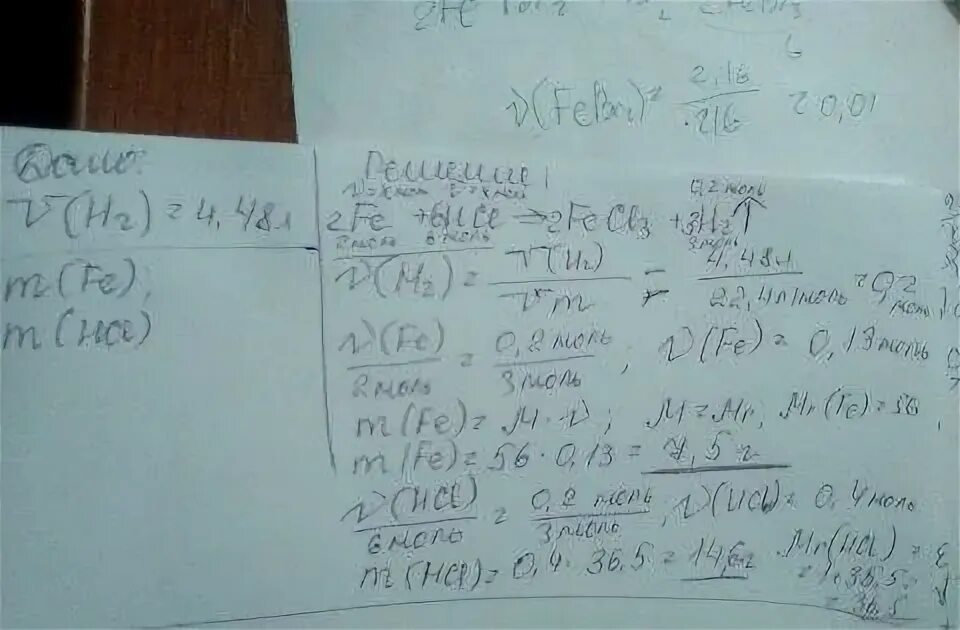 ν(FeBr₂) = 2,16 / 216 = 0,01
Дано:
V(H₂) = 4,48л
m(Fe),
m(HCl)
Решение:
0,2 моль
2Fe + 6HCl → 2FeCl₃ + 3H₂↑
2моль 6моль 3моль
ν(H₂) = V(H₂) / Vm = 4,48л / 22,4л/моль = 0,2 моль
ν(Fe) / 2моль = 0,2моль / 3моль ; ν(Fe) = 0,13моль
m(Fe) = M · ν ; M = Mr, Mr(Fe) = 56
m(Fe) = 56 · 0,13 = 7,5 г
ν(HCl) / 6моль = 0,2 моль / 3моль , ν(HCl) = 0,4моль
m(HCl) = 0,4 · 36,5 = 14,6г Mr(HCl) =
= 1+35,5
= 36,5